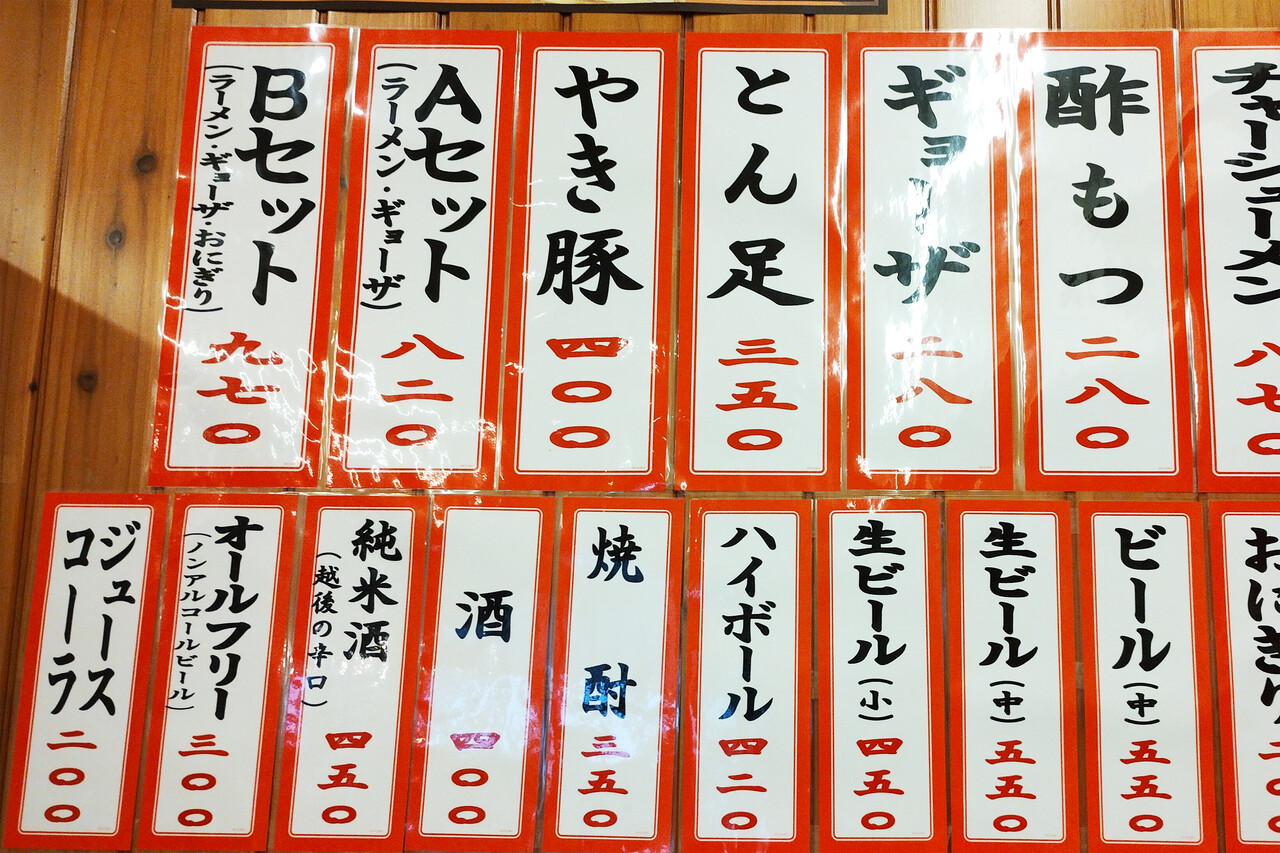 チャーシューメン
八七〇
酢もつ
二八〇
ギョーザ
二八〇
とん足
三五〇
やき豚
四〇〇
Aセット
(ラーメン・ギョーザ)
八二〇
Bセット
(ラーメン・ギョーザ・おにぎり)
九七〇
おにぎり
ビール(中)
五五〇
生ビール(中)
五五〇
生ビール(小)
四五〇
ハイボール
四二〇
焼酎
三五〇
酒
四〇〇
純米酒
(越後の辛口)
四五〇
オールフリー
(ノンアルコールビール)
三〇〇
ジュース
コーラ
二〇〇